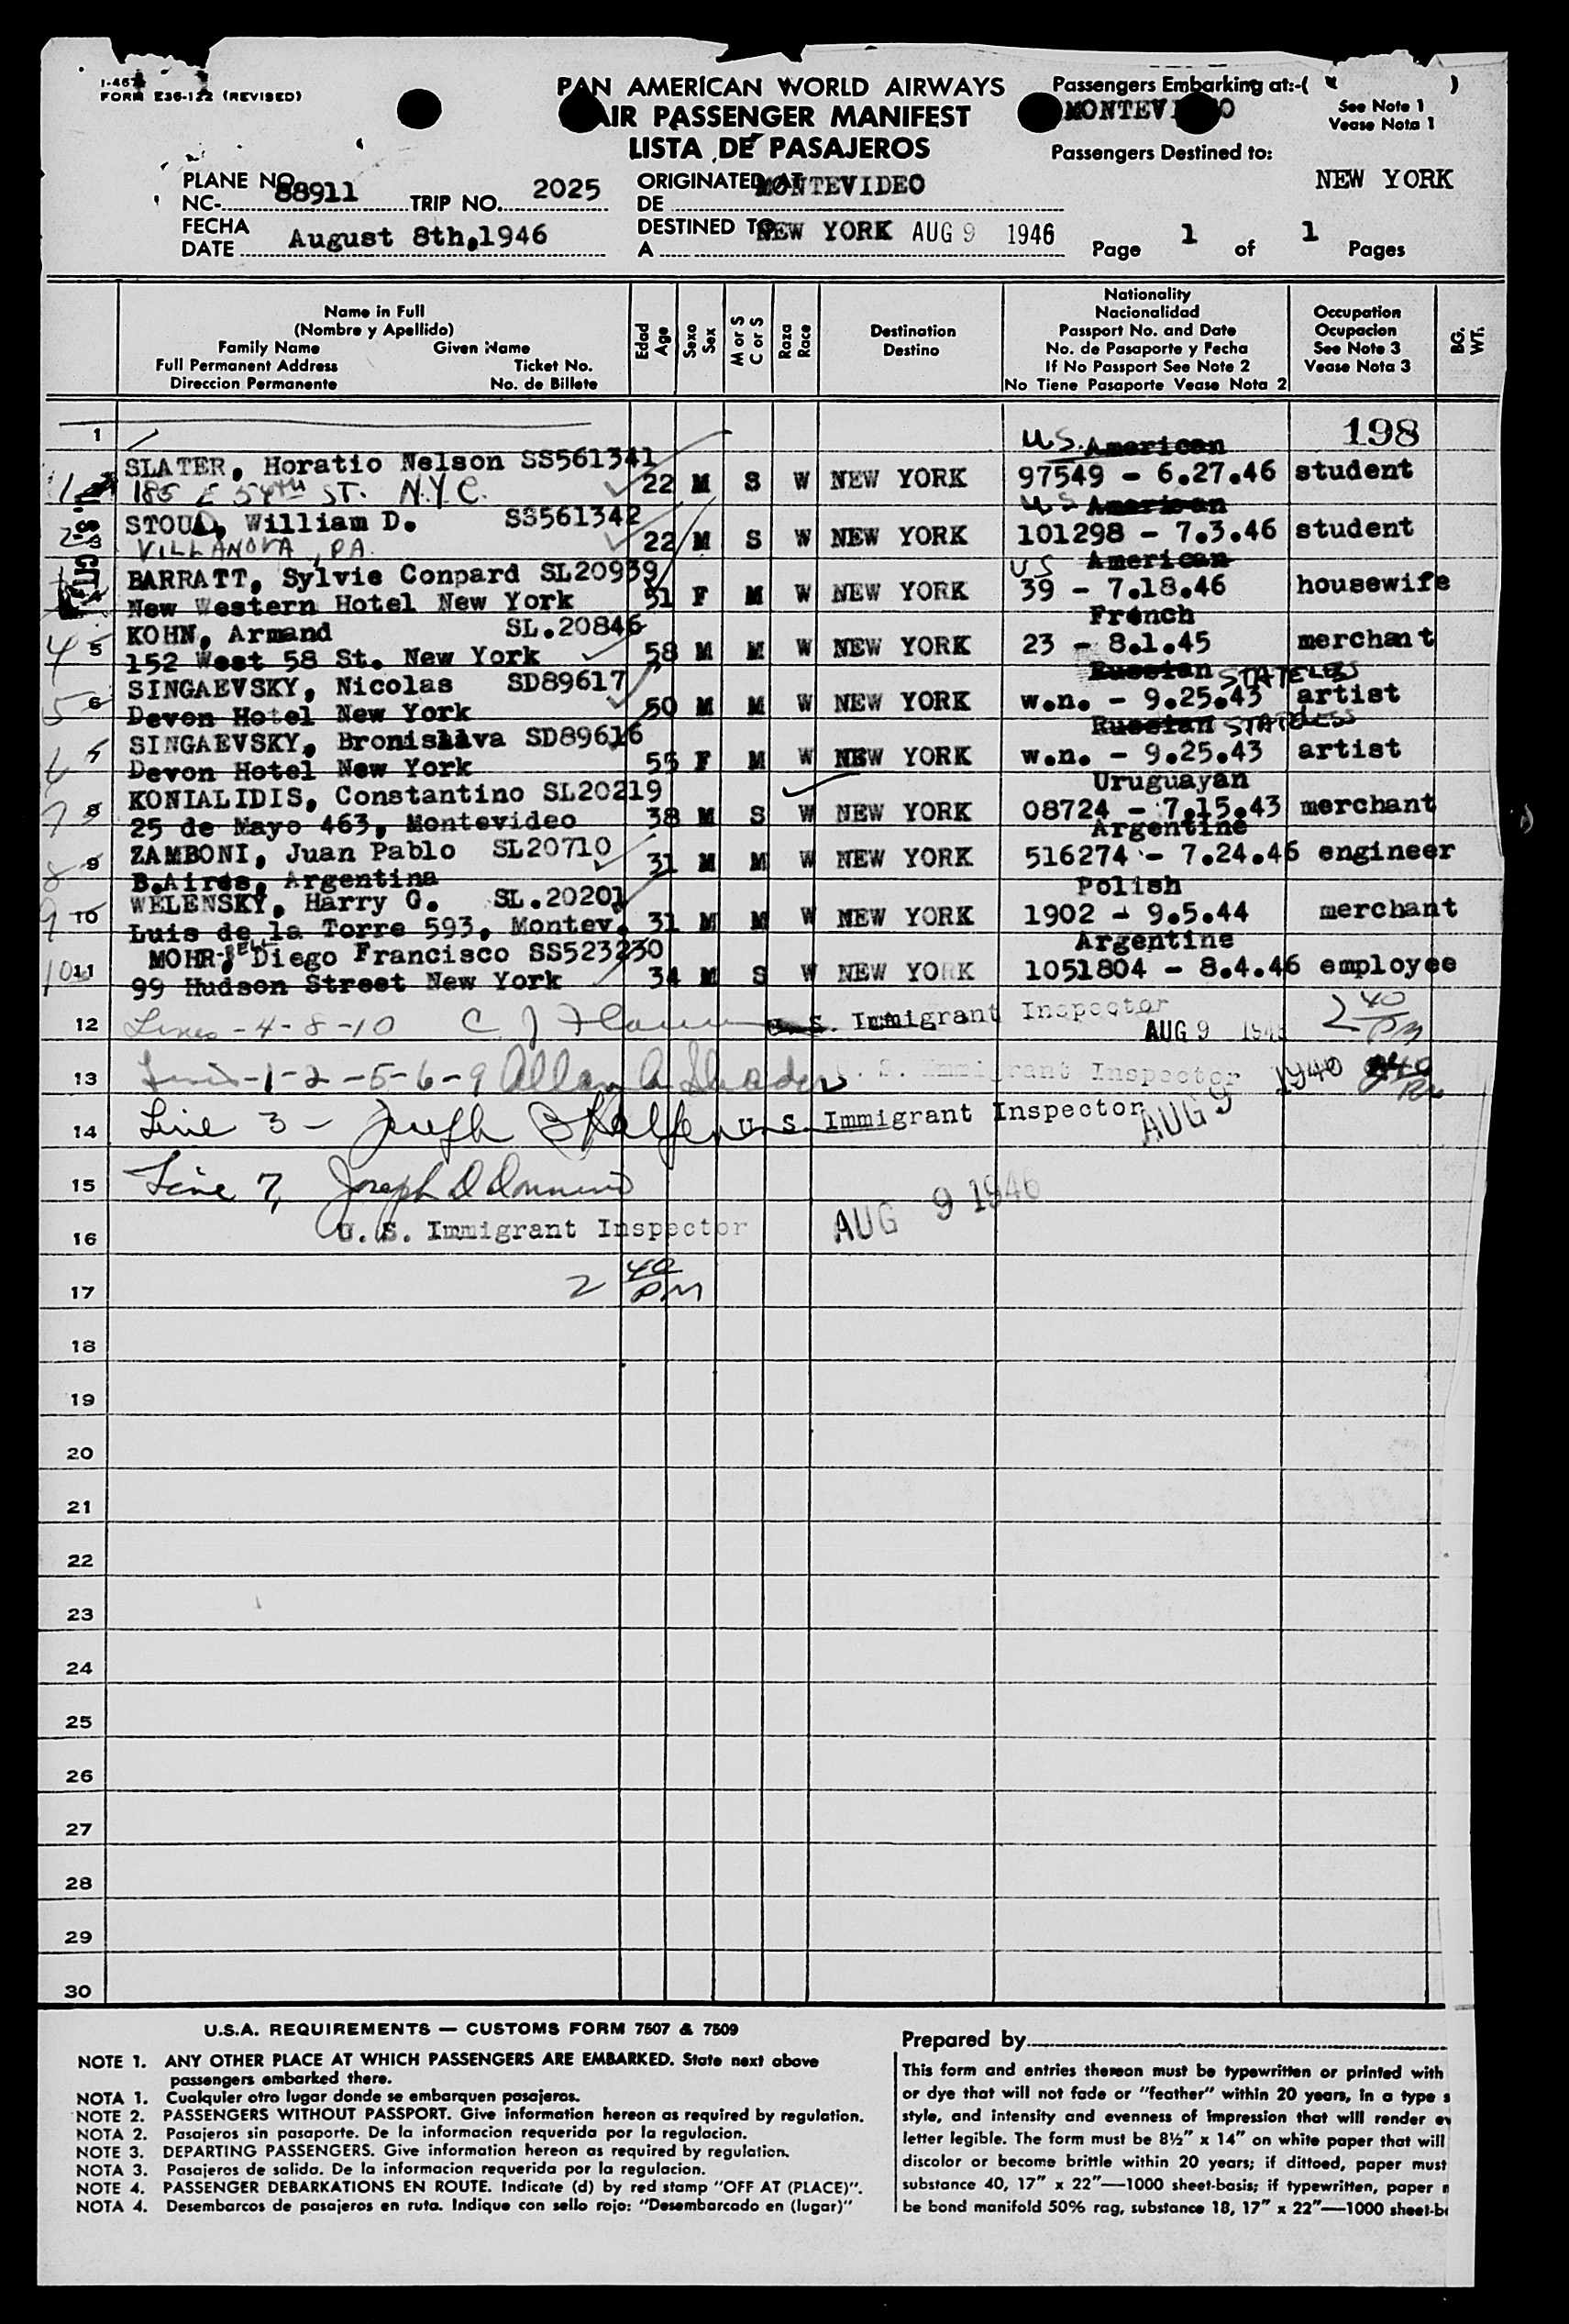 I-467
FORM E36-122 (REVISED)
PAN AMERICAN WORLD AIRWAYS
AIR PASSENGER MANIFEST
LISTA DE PASAJEROS
Passengers Embarking at:-( )
MONTEVIDEO
See Note 1
Vease Nota 1
Passengers Destined to:
NEW YORK
PLANE NO.
NC- 88911 TRIP NO. 2025
ORIGINATED AT
DE MONTEVIDEO
FECHA
DATE August 8th,1946
DESTINED TO
A NEW YORK AUG 9 1946
Page 1 of 1 Pages
Name in Full
(Nombre y Apellido)
Family Name Given Name
Full Permanent Address Ticket No.
Direccion Permanente No. de Billete
Edad
Age
Sexo
Sex
M or S
C or S
Raza
Race
Destination
Destino
Nationality
Nacionalidad
Passport No. and Date
No. de Pasaporte y Fecha
If No Passport See Note 2
No Tiene Pasaporte Vease Nota 2
Occupation
Ocupacion
See Note 3
Vease Nota 3
BG.
WT.
1 198
U.S. American
SLATER, Horatio Nelson SS561341
1 185 E 54TH ST. N.Y.C. 22 M S W NEW YORK 97549 - 6.27.46 student
U S American
STOUD, William D. SS561342
2 3 VILLANOVA, PA. 22 M S W NEW YORK 101298 - 7.3.46 student
U S American
BARRATT, Sylvie Conpard SL20939
New Western Hotel New York 51 F M W NEW YORK 39 - 7.18.46 housewife
French
KOHN, Armand SL.20846
4 5 152 West 58 St. New York 58 M M W NEW YORK 23 - 8.1.45 merchant
Russian STATELESS
SINGAEVSKY, Nicolas SD89617
5 6 Devon Hotel New York 50 M M W NEW YORK w.n. - 9.25.43 artist
Russian STATELESS
SINGAEVSKY, Bronislava SD89616
6 7 Devon Hotel New York 55 F M W NEW YORK w.n. - 9.25.43 artist
Uruguayan
KONIALIDIS, Constantino SL20219
7 8 25 de Mayo 463, Montevideo 38 M S W NEW YORK 08724 - 7.15.43 merchant
Argentine
ZAMBONI, Juan Pablo SL20710
8 9 B.Aires, Argentina 31 M M W NEW YORK 516274 - 7.24.46 engineer
Polish
WELENSKY, Harry G. SL.20201
9 10 Luis de la Torre 593, Montev. 31 M M W NEW YORK 1902 - 9.5.44 merchant
Argentine
MOHR-BELL, Diego Francisco SS523230
10 11 99 Hudson Street New York 34 M S W NEW YORK 1051804 - 8.4.46 employee
12 Lines -4-8-10 C J U. S. Immigrant Inspector AUG 9 1946 2 40 PM
13 Lines -1-2-5-6-9 Allan A. U. S. Immigrant Inspector 240 PM
14 Line 3 - Joseph U. S. Immigrant Inspector AUG 9 1946
15 Line 7, Joseph D
16 U. S. Immigrant Inspector AUG 9 1946
17 2 40 PM
18
19
20
21
22
23
24
25
26
27
28
29
30
U.S.A. REQUIREMENTS — CUSTOMS FORM 7507 & 7509
NOTE 1. ANY OTHER PLACE AT WHICH PASSENGERS ARE EMBARKED. State next above
passengers embarked there.
NOTA 1. Cualquier otro lugar donde se embarquen pasajeros.
NOTE 2. PASSENGERS WITHOUT PASSPORT. Give information hereon as required by regulation.
NOTA 2. Pasajeros sin pasaporte. De la informacion requerida por la regulacion.
NOTE 3. DEPARTING PASSENGERS. Give information hereon as required by regulation.
NOTA 3. Pasajeros de salida. De la informacion requerida por la regulacion.
NOTE 4. PASSENGER DEBARKATIONS EN ROUTE. Indicate (d) by red stamp "OFF AT (PLACE)".
NOTA 4. Desembarcos de pasajeros en ruta. Indique con sello rojo: "Desembarcado en (lugar)"
Prepared by
This form and entries thereon must be typewritten or printed with
or dye that will not fade or "feather" within 20 years, in a type s
style, and intensity and evenness of impression that will render ev
letter legible. The form must be 8½" x 14" on white paper that will
discolor or become brittle within 20 years; if dittoed, paper must
substance 40, 17" x 22"—1000 sheet-basis; if typewritten, paper
be bond manifold 50% rag, substance 18, 17" x 22"—1000 sheet-b